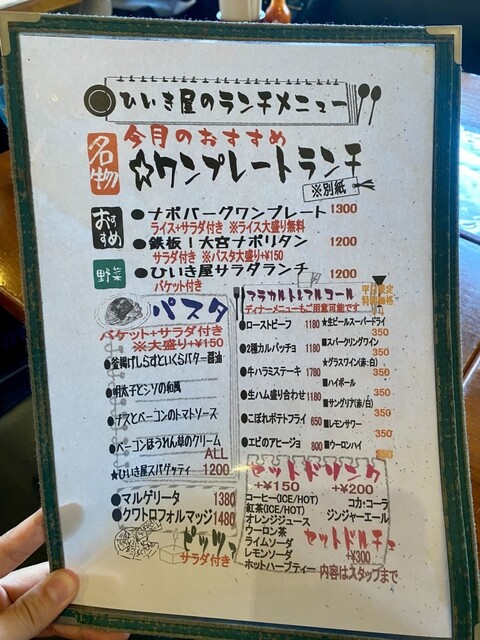 ひいき屋のランチメニュー
名物
今月のおすすめ
☆ワンプレートランチ
※別紙
おすすめ
●ナポバーグワンプレート 1300
ライス+サラダ付き ※ライス大盛り無料
●鉄板!大宮ナポリタン 1200
サラダ付き ※パスタ大盛り+¥150
野菜
●ひいき屋サラダランチ 1200
バケット付き
パスタ
バケット+サラダ付き
※大盛り+¥150
●釜揚げしらすといくらバター醤油
●明太子とシソの和風
●ナスとベーコンのトマトソース
●ベーコンほうれん草のクリーム
ALL
★ひいき屋スパゲッティ 1200
●マルゲリータ 1380
●クワトロフォルマッジ 1480
ピッツァ
サラダ付き
アラカルト&アルコール
ディナーメニューもご用意可能です
平日限定
特別価格
●ローストビーフ 1180
●2種カルパッチョ 1180
●牛ハラミステーキ 1780
●生ハム盛り合わせ 1180
●こぼれポテトフライ 650
●エビのアヒージョ 800
★生ビールスーパードライ
350
■スパークリングワイン
350
★グラスワイン(赤:白)
350
■ハイボール
350
■サングリア(赤/白)
350
■レモンサワー
350
■ウーロンハイ
350
セットドリンク
+¥150
コーヒー(ICE/HOT)
紅茶(ICE/HOT)
オレンジジュース
ウーロン茶
ライムソーダ
レモンソーダ
ホットハーブティー
+¥200
コカ・コーラ
ジンジャーエール
セットドルチェ
+¥300
内容はスタッフまで